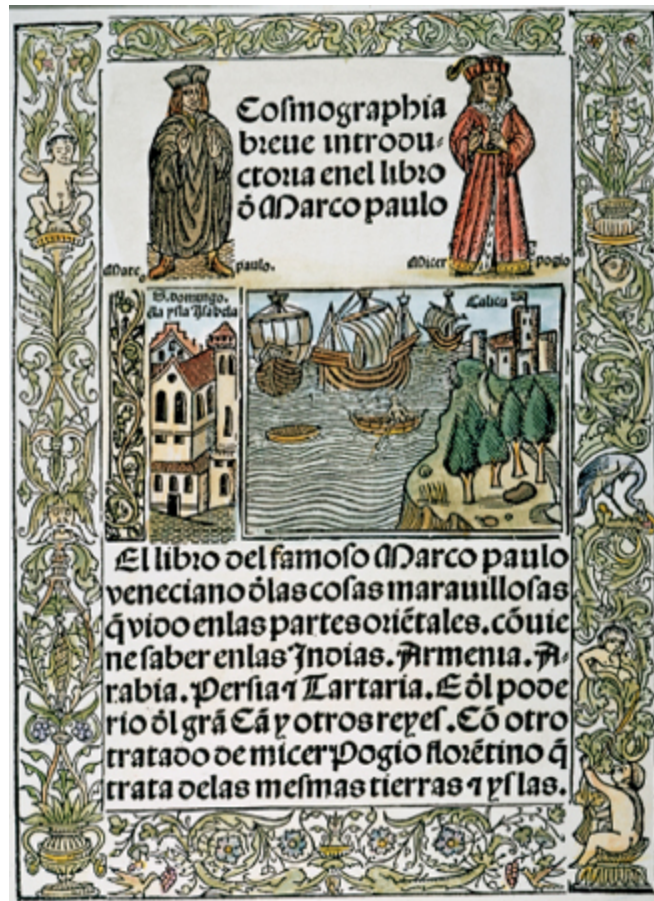 Coſmographia
breue introdu⸗
ctoria enel libro
ð Marco paulo
Marc
o
paulo.
Micer
pogio
S. domingo.
Ila yſla Yſabela
Calicu
El libro del famoſo Marco paulo
veneciano ðlas coſas marauilloſas
q̃ vido enlas partes oriẽtales. cõuie
ne ſaber enlas Indias. Armenia. A⸗
rabia. Perſia ⁊ Tartaria. E ðl pode
rio ðl grã Cã y otros reyeſ. Cõ otro
tratado de micer Pogio florẽtino q̃
trata delas meſmas tierras ⁊ yſlas.